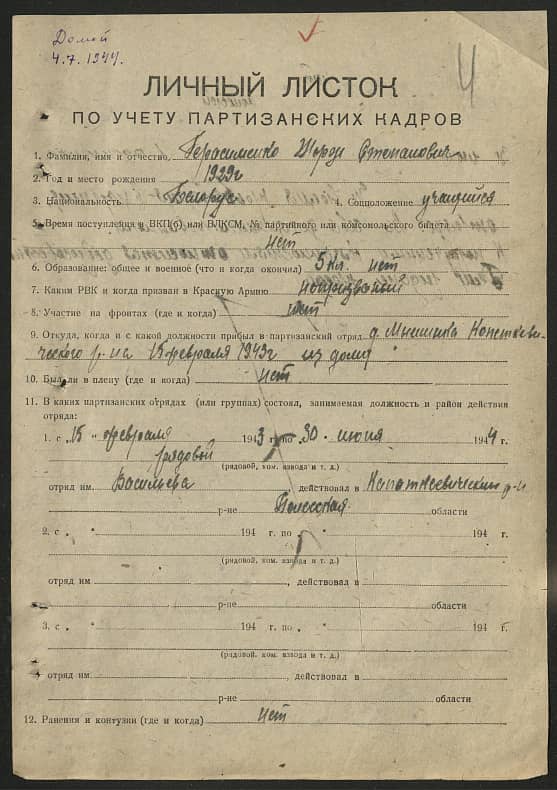 Домой
4.7.1944.
4
ЛИЧНЫЙ ЛИСТОК
ПО УЧЕТУ ПАРТИЗАНСКИХ КАДРОВ
1. Фамилия, имя и отчество Герасименко Степанович
2. Год и место рождения 1929г
3. Национальность Белорус 4. Соцположение учащийся
5. Время поступления в ВКП(б) или ВЛКСМ, № партийного или комсомольского билета
нет
6. Образование: общее и военное (что и когда окончил) 5 кл. нет
7. Каким РВК и когда призван в Красную Армию
8. Участие на фронтах (где и когда) нет
9. Откуда, когда и с какой должности прибыл в партизанский отряд д. Копаткеви-
ческого р-на 15 февраля 1943г из дому
10. Был ли в плену (где и когда) нет
11. В каких партизанских отрядах (или группах) состоял, занимаемая должность и район действия
отряда:
1. с „ 15 “ февраля 1943 г. по 30 “ июня 1944 г.
рядовой
(рядовой, ком. взвода и т. д.)
отряд им. Васильева, действовал в Копаткевический р-н
р-не Полесская области
2. с „ “ 194 г. по „ “ 194 г.
(рядовой, ком. взвода и т. д.)
отряд им , действовал в
р-не области
3. с „ “ 194 г. по „ “ 194 г.
(рядовой, ком. взвода и т. д.)
отряд им , действовал в
р-не области
12. Ранения и контузии (где и когда) нет